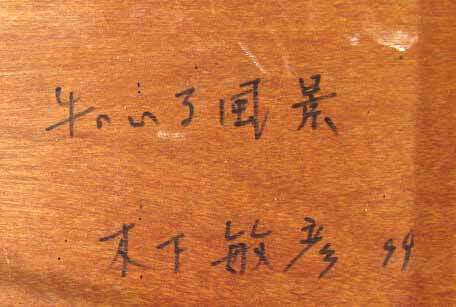 牛のいる風景
木下敏彦 99